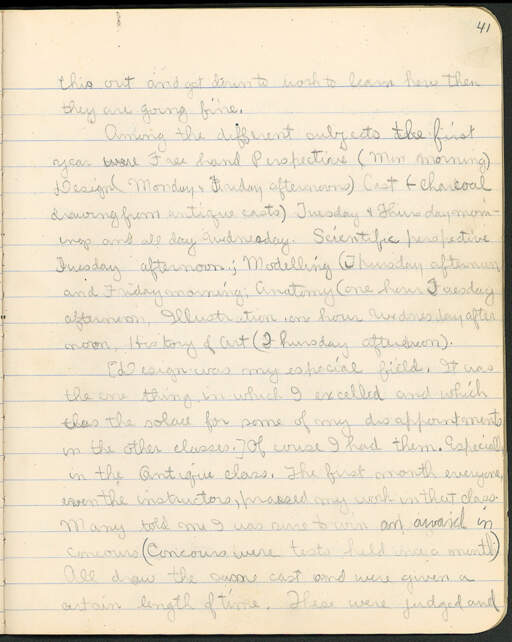 41
this out and get down to work to learn how then
they are going fine.
Among the different subjects the first
year were Free hand Perspective (Mon morning)
Design (Monday & Friday afternoons) Cast (charcoal
drawing from antique casts) Tuesday & Thursday morn-
ings and all day Wednesday. Scientific perspective
Tuesday afternoon; Modelling (Thursday afternoon
and Friday morning; Anatomy (one hour Tuesday
afternoon, Illustration on hour Wednesday after
noon, History of Art (Thursday afternoon).
[Design was my especial field. It was
the one thing in which I excelled and which
was the solace for some of my disappointments
in the other classes.] Of course I had them. Especially
in the Antique class. The first month everyone,
even the instructors, praised my work in that class.
Many told me I was sure to win an award in
concours (Concours were tests held once a month)
All draw the same cast and were given a
certain length of time. These were judged and